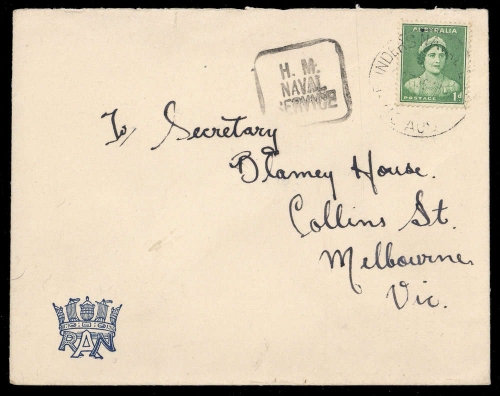 H. M.
NAVAL
SERVICE
AUSTRALIA
POSTAGE 1d
To Secretary
Blamey House.
Collins St.
Melbourne
Vic.
RAN